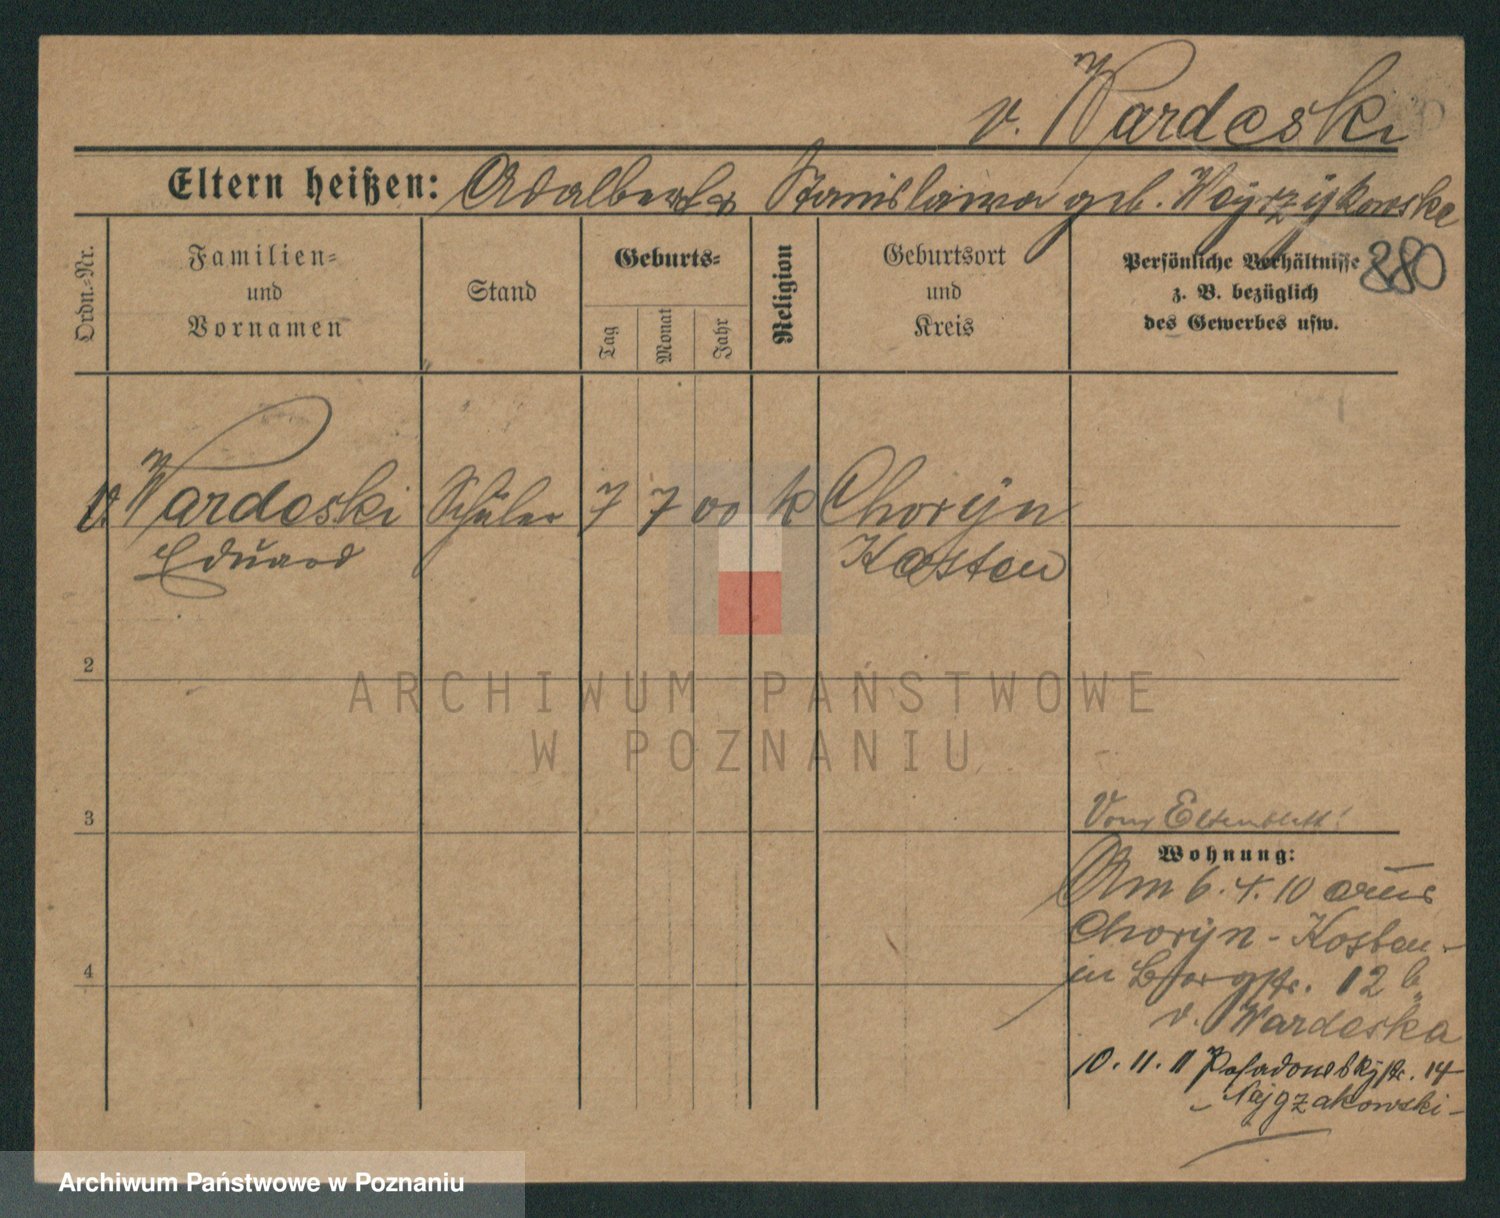 v. Wardeski
Eltern heißen: Adalbert u Stanislawa geb. Woyrzykowska
Ordn.-Nr.
Familien-
und
Vornamen
Stand
Geburts-
Tag
Monat
Jahr
Religion
Geburtsort
und
Kreis
Persönliche Verhältnisse
z. B. bezüglich
des Gewerbes usw.
380
v. Wardeski Schüler 7 7 00 k Choryn
Eduard Kosten
2
3
4
Vom Elternblatt!
Wohnung:
Am 6. 4. 10 aus
Choryn - Kosten -
in Bergstr. 12 b
v. Wardeska
10. 11. 11 Posadowskystr. 14
ARCHIWUM PAŃSTWOWE
W POZNANIU
Archiwum Państwowe w Poznaniu